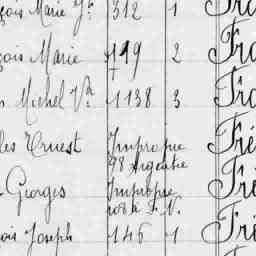 çois Marie Jh 312 1 Fra
çois Marie 119 2 Fra
Michel Vn 1138 3 Fra
les Ernest Impropre Fré
98 Argentre
Georges Impropre Fré
108 à S. N.
ois Joseph 146 1 Fré